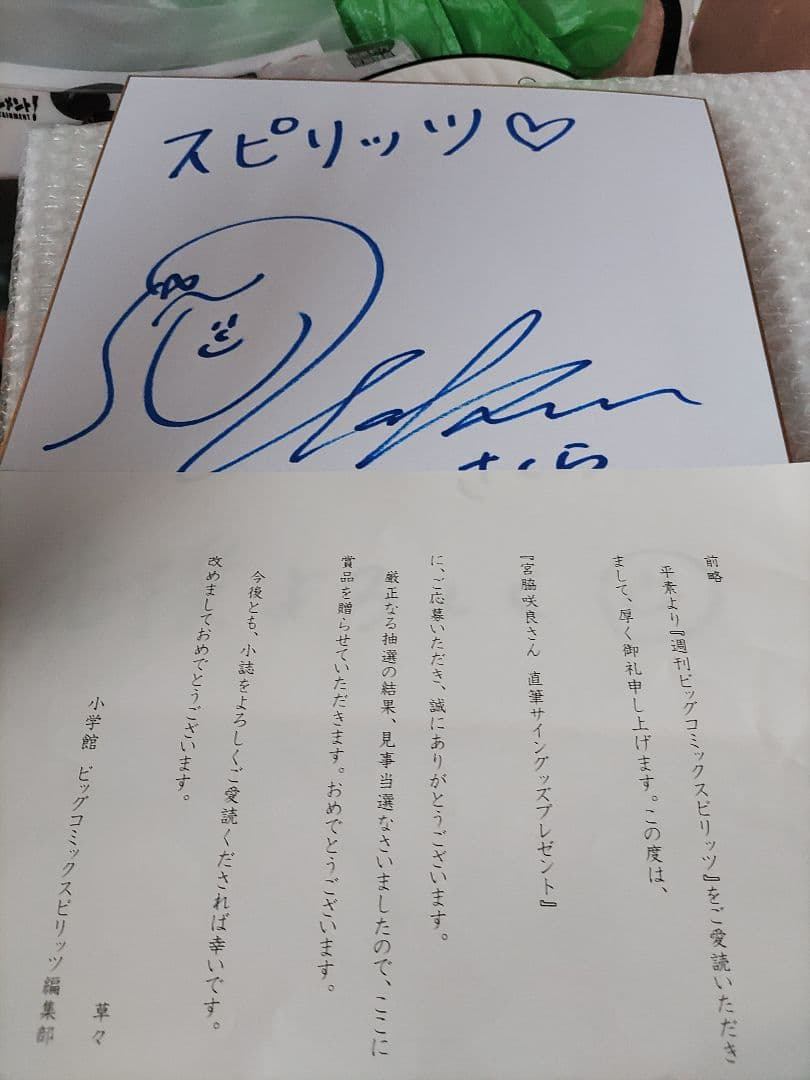 スピリッツ♡
Sakura
さくら
前略
平素より『週刊ビッグコミックスピリッツ』をご愛読いただき
まして、厚く御礼申し上げます。この度は、
『宮脇咲良さん 直筆サイングッズプレゼント』
に、ご応募いただき、誠にありがとうございます。
厳正なる抽選の結果、見事当選なさいましたので、ここに
賞品を贈らせていただきます。おめでとうございます。
今後とも、小誌をよろしくご愛読くだされば幸いです。
改めましておめでとうございます。
草々
小学館 ビッグコミックスピリッツ編集部